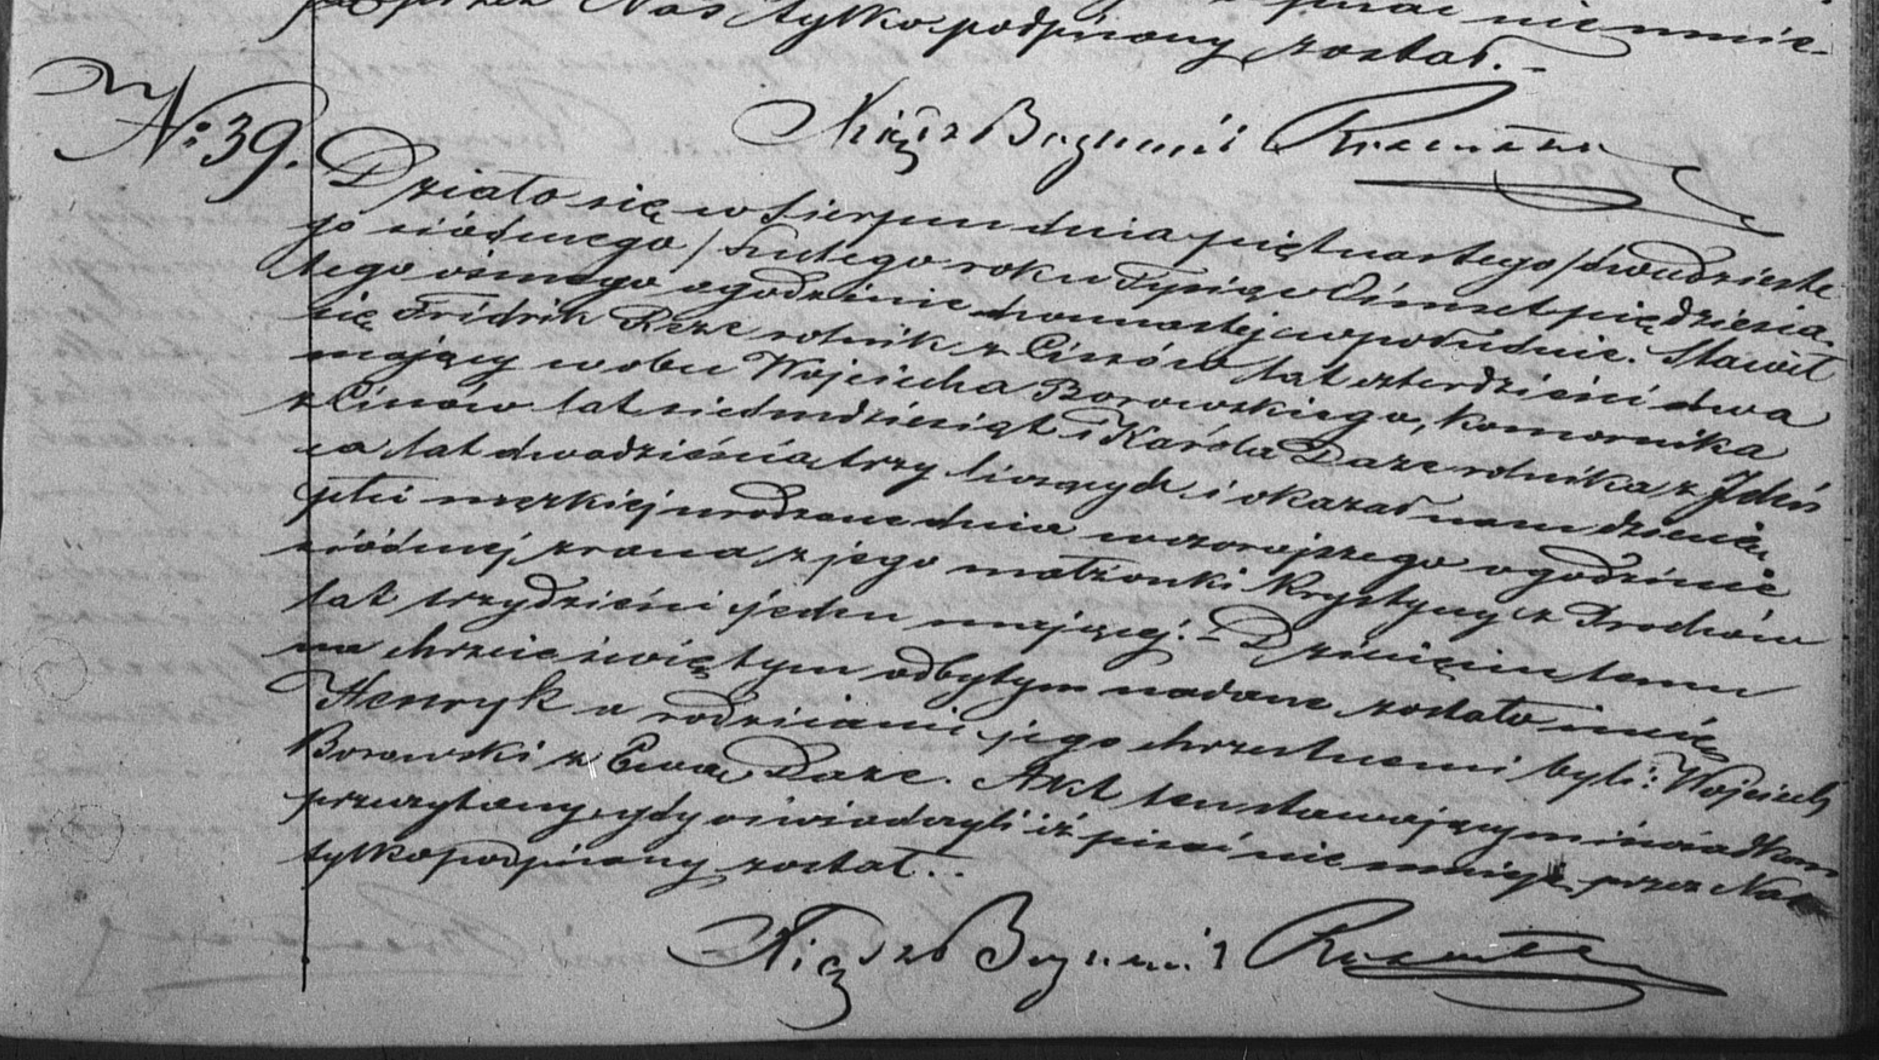 przez Nas tylko podpisany został. -
Ksiądz Bogumił
N: 39.
Działo się w Sierpcu dnia piętnastego / dwudzieste
go siódmego / Lutego roku Tysiąc Ośmset pięćdziesią
tego ósmego o godzinie dwunastej w południe. Stawił
się Fridrik Reze rolnik z Cissów lat czterdzieści dwa
mający w obec Wojciecha Borowskiego, komornika
z Cissów lat siedmdziesiąt i Karola Daze rolnika z
ca lat dwadzieścia trzy liczących i okazał nam dziecię
płci męzkiej urodzone dnia wczorajszego o godzinie
siódmej zrana z jego małżonki Krystyny z Drochów
lat trzydzieści jeden mającej. - Dziecięciu temu
na chrzcie świętym odbytym nadane zostało imie
Henryk a rodzicami jego chrzestnemi byli: Wojciech
Borowski z Ewą Daze. Akt ten stawającym i świadkom
przeczytany, gdy oświadczyli iż pisać nie umieją, przez Nas
tylko podpisany został..
Ksiądz Bogumił